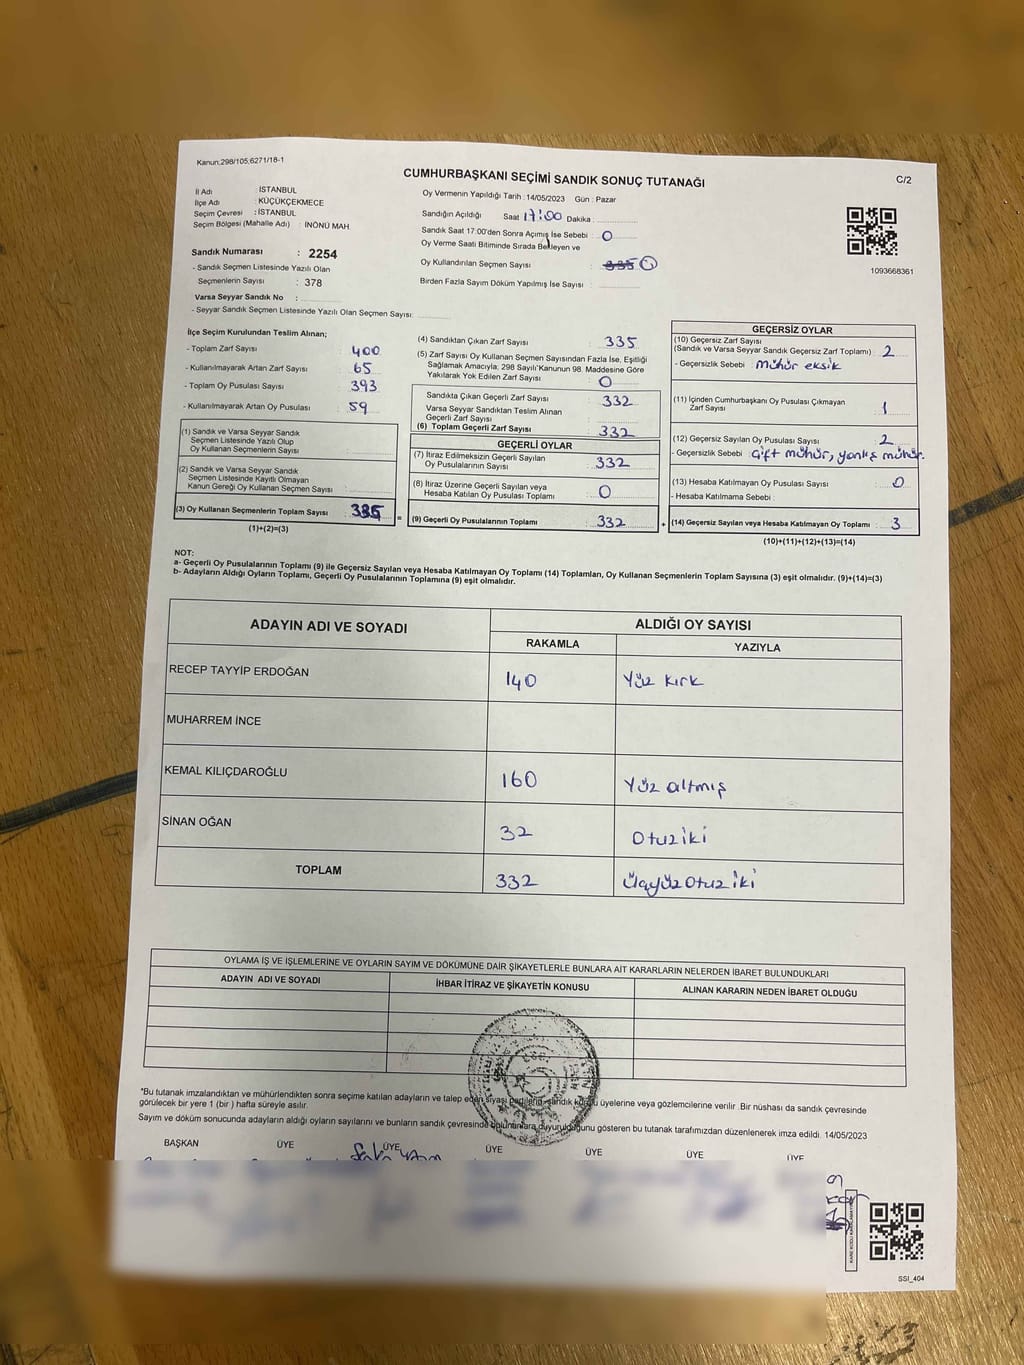 Kanun:298/105;6271/18-1
CUMHURBAŞKANI SEÇİMİ SANDIK SONUÇ TUTANAĞI
C/2
İl Adı : İSTANBUL
İlçe Adı : KÜÇÜKÇEKMECE
Seçim Çevresi : İSTANBUL
Seçim Bölgesi (Mahalle Adı) : İNÖNÜ MAH.
Sandık Numarası : 2254
- Sandık Seçmen Listesinde Yazılı Olan
Seçmenlerin Sayısı : 378
Varsa Seyyar Sandık No :
- Seyyar Sandık Seçmen Listesinde Yazılı Olan Seçmen Sayısı:
Oy Vermenin Yapıldığı Tarih : 14/05/2023 Gün : Pazar
Sandığın Açıldığı Saat 17:00 Dakika :
Sandık Saat 17:00'den Sonra Açımış İse Sebebi : 0
Oy Verme Saati Bitiminde Sırada Bekleyen ve
Oy Kullandırılan Seçmen Sayısı : 335 0
Birden Fazla Sayım Döküm Yapılmış İse Sayısı :
1093668361
İlçe Seçim Kurulundan Teslim Alınan;
- Toplam Zarf Sayısı : 400
- Kullanılmayarak Artan Zarf Sayısı : 65
- Toplam Oy Pusulası Sayısı : 393
- Kullanılmayarak Artan Oy Pusulası : 59
(1) Sandık ve Varsa Seyyar Sandık
Seçmen Listesinde Yazılı Olup
Oy Kullanan Seçmen Sayısı :
(2) Sandık ve Varsa Seyyar Sandık
Seçmen Listesinde Kayıtlı Olmayan
Kanun Gereği Oy Kullanan Seçmen Sayısı :
(3) Oy Kullanan Seçmenlerin Toplam Sayısı : 335
(1)+(2)=(3)
(4) Sandıktan Çıkan Zarf Sayısı : 335
(5) Zarf Sayısı Oy Kullanan Seçmen Sayısından Fazla İse, Eşitliği
Sağlamak Amacıyla; 298 Sayılı Kanunun 98. Maddesine Göre
Yakılarak Yok Edilen Zarf Sayısı : 0
Sandıkta Çıkan Geçerli Zarf Sayısı : 332
Varsa Seyyar Sandıktan Teslim Alınan
Geçerli Zarf Sayısı :
(6) Toplam Geçerli Zarf Sayısı : 332
GEÇERLİ OYLAR
(7) İtiraz Edilmeksizin Geçerli Sayılan
Oy Pusulalarının Sayısı : 332
(8) İtiraz Üzerine Geçerli Sayılan veya
Hesaba Katılan Oy Pusulası Toplamı : 0
= (9) Geçerli Oy Pusulalarının Toplamı : 332 +
GEÇERSİZ OYLAR
(10) Geçersiz Zarf Sayısı
(Sandık ve Varsa Seyyar Sandık Geçersiz Zarf Toplamı) : 2
- Geçersizlik Sebebi : mühür eksik
(11) İçinden Cumhurbaşkanı Oy Pusulası Çıkmayan
Zarf Sayısı : 1
(12) Geçersiz Sayılan Oy Pusulası Sayısı : 2
- Geçersizlik Sebebi : Çift mühür, yanlış mühür.
(13) Hesaba Katılmayan Oy Pusulası Sayısı : 0
- Hesaba Katılmama Sebebi :
(14) Geçersiz Sayılan veya Hesaba Katılmayan Oy Toplamı : 3
(10)+(11)+(12)+(13)=(14)
NOT:
a- Geçerli Oy Pusulalarının Toplamı (9) ile Geçersiz Sayılan veya Hesaba Katılmayan Oy Toplamı (14) Toplamları, Oy Kullanan Seçmenlerin Toplam Sayısına (3) eşit olmalıdır. (9)+(14)=(3)
b- Adayların Aldığı Oyların Toplamı, Geçerli Oy Pusulalarının Toplamına (9) eşit olmalıdır.
ADAYIN ADI VE SOYADI ALDIĞI OY SAYISI
RAKAMLA YAZIYLA
RECEP TAYYİP ERDOĞAN 140 Yüz kırk
MUHARREM İNCE
KEMAL KILIÇDAROĞLU 160 Yüz altmış
SİNAN OĞAN 32 Otuziki
TOPLAM 332 Üçyüzotuziki
OYLAMA İŞ VE İŞLEMLERİNE VE OYLARIN SAYIM VE DÖKÜMÜNE DAİR ŞİKAYETLERLE BUNLARA AİT KARARLARIN NELERDEN İBARET BULUNDUKLARI
ADAYIN ADI VE SOYADI İHBAR İTİRAZ VE ŞİKAYETİN KONUSU ALINAN KARARIN NEDEN İBARET OLDUĞU
*Bu tutanak imzalandıktan ve mühürlendikten sonra seçime katılan adayların ve talep eden siyasi partilerin, sandık kurulu üyelerine veya gözlemcilerine verilir. Bir nüshası da sandık çevresinde
görülecek bir yere 1 (bir ) hafta süreyle asılır.
Sayım ve döküm sonucunda adayların aldığı oyların sayılarını ve bunların sandık çevresinde bulunanlara duyurulduğunu gösteren bu tutanak tarafımızdan düzenlenerek imza edildi. 14/05/2023
BAŞKAN ÜYE ÜYE ÜYE ÜYE ÜYE ÜYE
SSI_404